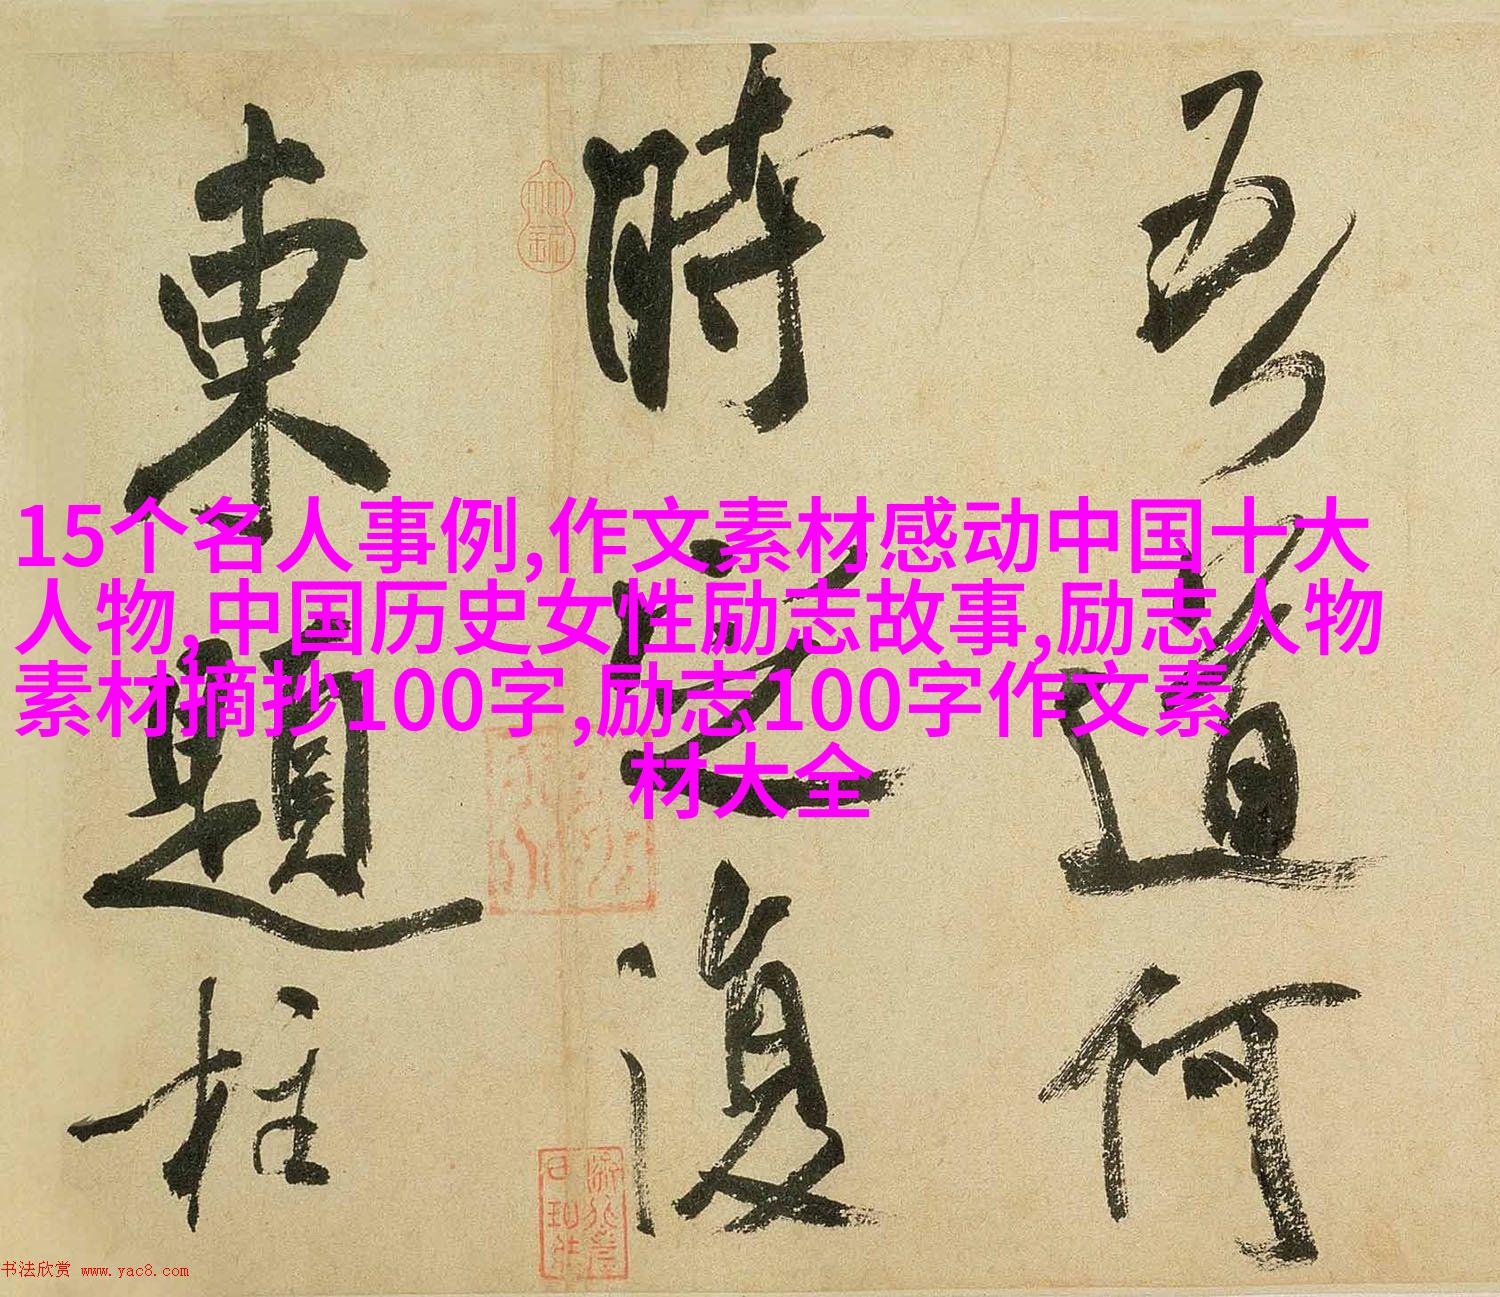 15个名人事例,作文素材感动中国十大
人物,中国历史女性励志故事,励志人物
素材摘抄100字,励志100字作文素
材大全
吾道何
時定復
東題柱
书法欣赏 www.yac8.com